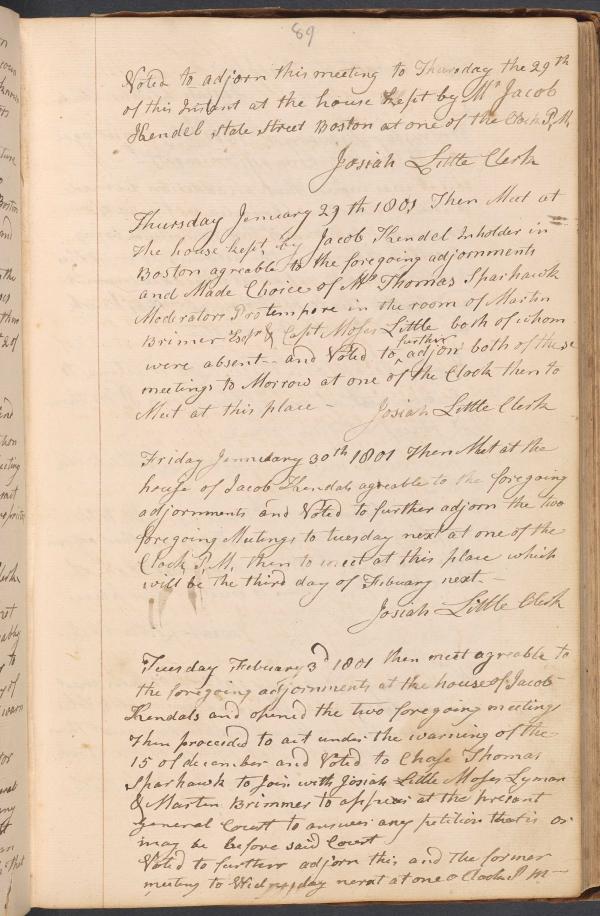 89
Voted to adjorn this meeting to Thursday the 29th
of this Instant at the house Kept by Mr Jacob
Kendel State Street Boston at one of the Clock P,M,
Josiah Little Clerk
Thursday Jenuary 29th 1801 Then Meet at
the house kept by Jacob Kendel Inholder in
Boston agreable to the foregoing adjornments
and Made Choice of Mr Thomas Sparhawk
Moderators Protempore in the room of Martin
Brimer Esqr & Capt Moses Little both of whom
were absent - and Voted to further adjorn both of these
meetings to Morrow at one of the Clock then to
Meet at this place -
Josiah Little Clerk
Friday Jenuary 30th 1801 Then Met at the
house of Jacob Kendals agreable to the foregoing
adjornments and Voted to further adjorn the two
foregoing Meetings to tuesday next at one of the
Clock P,M, then to meet at this place which
will be the third day of Febuary next -
Josiah Little Clerk
Tuesday Febuary 3d 1801 then meet agreable to
the foregoing adjornments at the house of Jacob
Kendals and opened the two foregoing meetings
then proceeded to act under the warning of the
15 of december and Voted to Chose Thomas
Sparhawk to Join with Josiah Little Moses Lyman
& Martin Brimmer to appear at the present
General Court to answer any petition that is or
may be before said Court
Voted to further adjorn this and the former
meeting to Wednesday next at one o Clock P M -